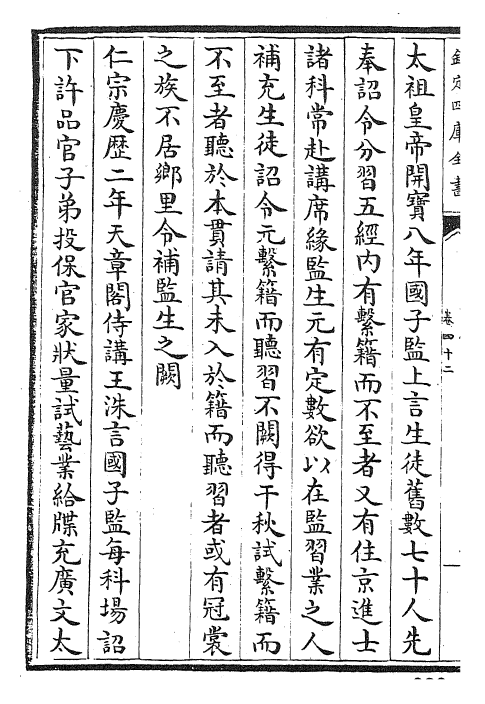 欽定四庫全書
卷四十二
太祖皇帝開寶八年國子監上言生徒舊數七十人先
奉詔令分習五經內有繫籍而不至者又有住京進士
諸科常赴講席緣監生元有定數欲以在監習業之人
補充生徒詔令元繫籍而聽習不闕得千秋試繫籍而
不至者聽於本貫請其未入於籍而聽習者或有冠裳
之族不居鄉里令補監生之闕
仁宗慶歷二年天章閣侍講王洙言國子監每科場詔
下許品官子弟投保官家狀量試藝業給牒充廣文太